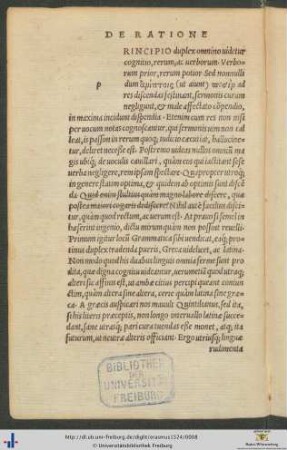 DE RATIONE
RINCIPIO duplex omnino uidetur
cognitio, rerum, ac uerborum. Verbo-
rum prior, rerum potior. Sed nonnulli
p
dum ad
res discendas festinant, sermonis curam
negligunt, & male affectato compendio,
in maxima incidunt dispendia. Etenim cum res non nisi
per uocum notas cognoscantur, qui sermonis uim non cal-
leat, is passim in rerum quoque iudicio cæcutiat, hallucine-
tur, deliret necesse est. Postremo uideas nullos omnium ma
gis ubique de uoculis cauillari, quàm eos qui iactitant sese
uerba negligere, rem ipsam spectare. Quapropter utroque
in genere statim optima, & quidem ab optimis sunt disce
da. Quid enim stultius quàm magno labore discere, quæ
postea maiori cogaris dediscere? Nihil autem facilius discitur,
quàm quod rectum, ac uerum est. At praua si semel in
hæserint ingenio, dictu mirum quàm non possint reuelli.
Primum igitur locum Grammatica sibi uendicat, eaque pro
tinus duplex tradenda pueris, Græca uidelicet, ac latina.
Non modo quòd his duabus linguis omnia ferme sunt pro
dita, quæ digna cognitu uideantur, uerumetiam quòd utraque
alteri sic affinis est, ut ambæ citius percipi queant coniun
ctim, quàm altera sine altera, certe quàm latina sine græ-
ca. A græcis auspicari nos mauult Quintilianus, sed ita,
si his literis præceptis, non longo interuallo latinæ succe-
dant, sane utrasque pari cura tuendas esse monet, atque ita
futurum, ut neutræ alteris officiant. Ergo utriusque linguæ
rudimenta
BIBLIOTHEK
DER
UNIVERSIT.
FREIBURG
http://dl.ub.uni-freiburg.de/diglit/erasmus1524/0008
© Universitätsbibliothek Freiburg
Baden-Württemberg